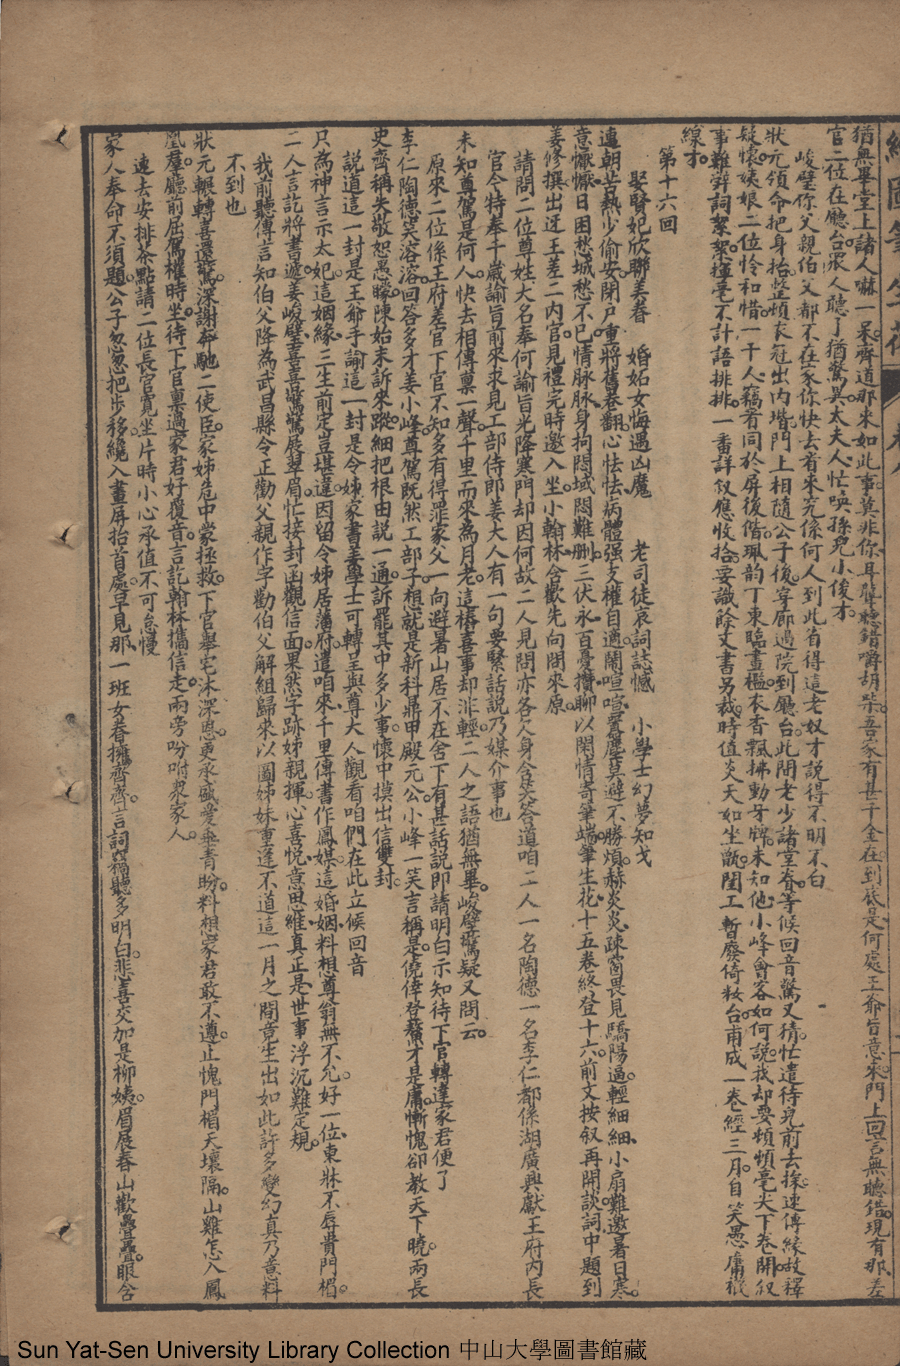 繪圖筆生花 卷八
猶無畢堂上諸人嚇一呆齊道那來如此事莫非你耳聾聽錯嚼胡柴吾家有甚千金在到底是何處王爺旨意來門上回言無聽借現有那差
官二位在廳台眾人聽了猶驚異太夫人忙喚孫兒小俊才
峻壁你父親伯父都不在家你快去看來究係何人到此省得這老奴才說得不明不白
狀元領命把身抬整頓衣冠出內堦門上相隨公子後穿廊過院到廳台此間老少諸堂眷等候回音驚又猜忙遣待兒前去探速傳緣故釋
疑懷姨娘二位怜和惜一干人竊看同於屏後偕珮韵丁東臨畫檻衣香飄拂動牙牌未知他小峰會客如何說我却要頓頓毫尖下卷開叙
事難辤詞絮絮揮毫不計語排排一番詳叙應收拾要識餘文書另裁時值炎天如坐甑閨工暫廢倚妝台甫成一卷經三月自笑愚庸襪
線才
第十六回
娶賢妃欣聯美眷 婚妬女悔遇凶魔 老司徒哀詞誌憾 小學士幻夢知戈
連朝苦熱少偷安閉戶重將舊卷翻心怯怯病體强支權自適鬧喧喧囂塵莫避不勝煩赫炎炎疎窗畏見驕陽逼輕細細小扇難邀暑日寒
意懨懨日困愁城愁不已情脉脉身拘悶域悶難刪三伏永百憂攢聊以閑情寄筆端筆生花十五卷終登十六前文按叙再開談詞中題到
姜修撰出迓王差二內官見禮完時邀入坐小翰林含歡先向開來原
請問二位尊姓大名奉何諭旨光降寒門却因何故二人見問亦各欠身含笑答道咱二人一名陶德一名李仁都係湖廣興獻王府內長
官今特奉千歲諭旨前來求見工部侍郎姜大人有一句要緊話說乃媒介事也
未知尊駕是何人快去相傳稟一聲千里而來為月老這樁喜事却非輕二人之語猶無畢峻壁驚疑又問云
原來二位係王府差官下官不知多有得罪家父一向避暑山居不在舍下有甚話說即請明白示知待下官轉達家君便了
李仁陶德笑溶溶回答多才姜小峰尊駕既然工部子想就是新科鼎甲殿元公小峰一笑言稱是僥倖登鰲才是庸慚愧卻教天下曉兩長
史齊稱失敬恕愚矇陳始末訴來蹤細把根由說一通訴罷其中多少事懷中摸出信雙封
說道這一封是王爺手諭這一封是令姊家書姜學士可轉呈與尊大人觀看咱們在此立候回音
只為神言示太妃這姻緣三生前定豈堪違因留令姊居藩府遣咱來千里傳書作鳳媒這婚姻料想尊翁無不允好一位東牀不辱貴門楣
二人言訖將書遞姜峻壁喜喜驚驚展翠眉忙接封函觀信面果然字跡姊親揮心喜悅意思維真正是世事浮沉難定規
我前聽傳言知伯父降為武昌縣令正勸父親作字勸伯父解組歸來以圖姊妹重逢不道這一月之間竟生出如此許多變幻真乃意料
不到也
狀元輾轉喜還驚深謝奔馳二使臣家姊危中蒙拯救下官舉宅沐深恩更承盛愛垂青盼料想家君敢不遵止愧門楣天壤隔山雞怎入鳳
凰羣廳前屈駕權時坐待下官稟過家君好覆音言訖翰林攜信走兩旁吩咐衆家人
速去安排茶點請二位長官寬坐片時小心承值不可怠慢
家人奉命不須題公子忽忽把步移纔入畫屏抬首處早見那一班女眷擁齊齊言詞竊聽多明白悲喜交加是柳姨眉展春山歡疊疊眼含
Sun Yat-Sen University Library Collection 中山大學圖書館藏